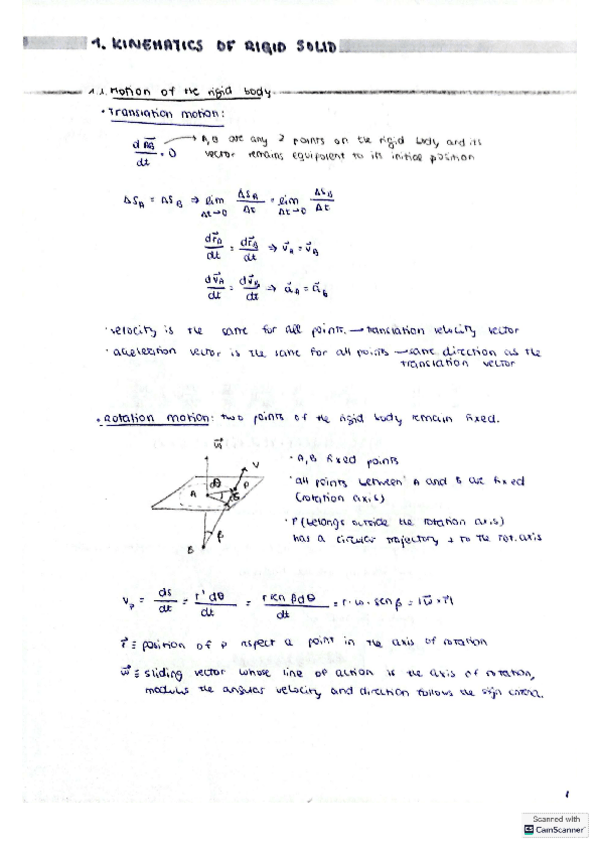 1. KINEMATICS OF RIGID SOLID
1.1. Motion of the rigid body
• Translation motion:
d AB / dt = 0 → A, B are any 2 points on the rigid body and its
vector remains equipolent to its initial position
ΔS_A = ΔS_B ⇒ lim Δt→0 ΔS_A / Δt = lim Δt→0 ΔS_B / Δt
d r⃗_A / dt = d r⃗_B / dt ⇒ v⃗_A = v⃗_B
d v⃗_A / dt = d v⃗_B / dt ⇒ a⃗_A = a⃗_B
· velocity is the same for all points → translation velocity vector
· acceleration vector is the same for all points → same direction as the
translation vector
• Rotation motion: two points of the rigid body remain fixed.
w⃗
v
dθ
P
A
β
B
· A, B fixed points
· all points between A and B are fixed
(rotation axis)
· P (belongs outside the rotation axis)
has a circular trajectory ⊥ to the rot. axis
v_P = ds / dt = r' dθ / dt = r sen β dθ / dt = r · w · sen β = |w⃗ × r⃗|
r⃗ ≡ position of P respect a point in the axis of rotation
w⃗ ≡ sliding vector whose line of action is the axis of rotation,
modulus the angular velocity and direction follows the sign criteria.
1
Scanned with
CS CamScanner